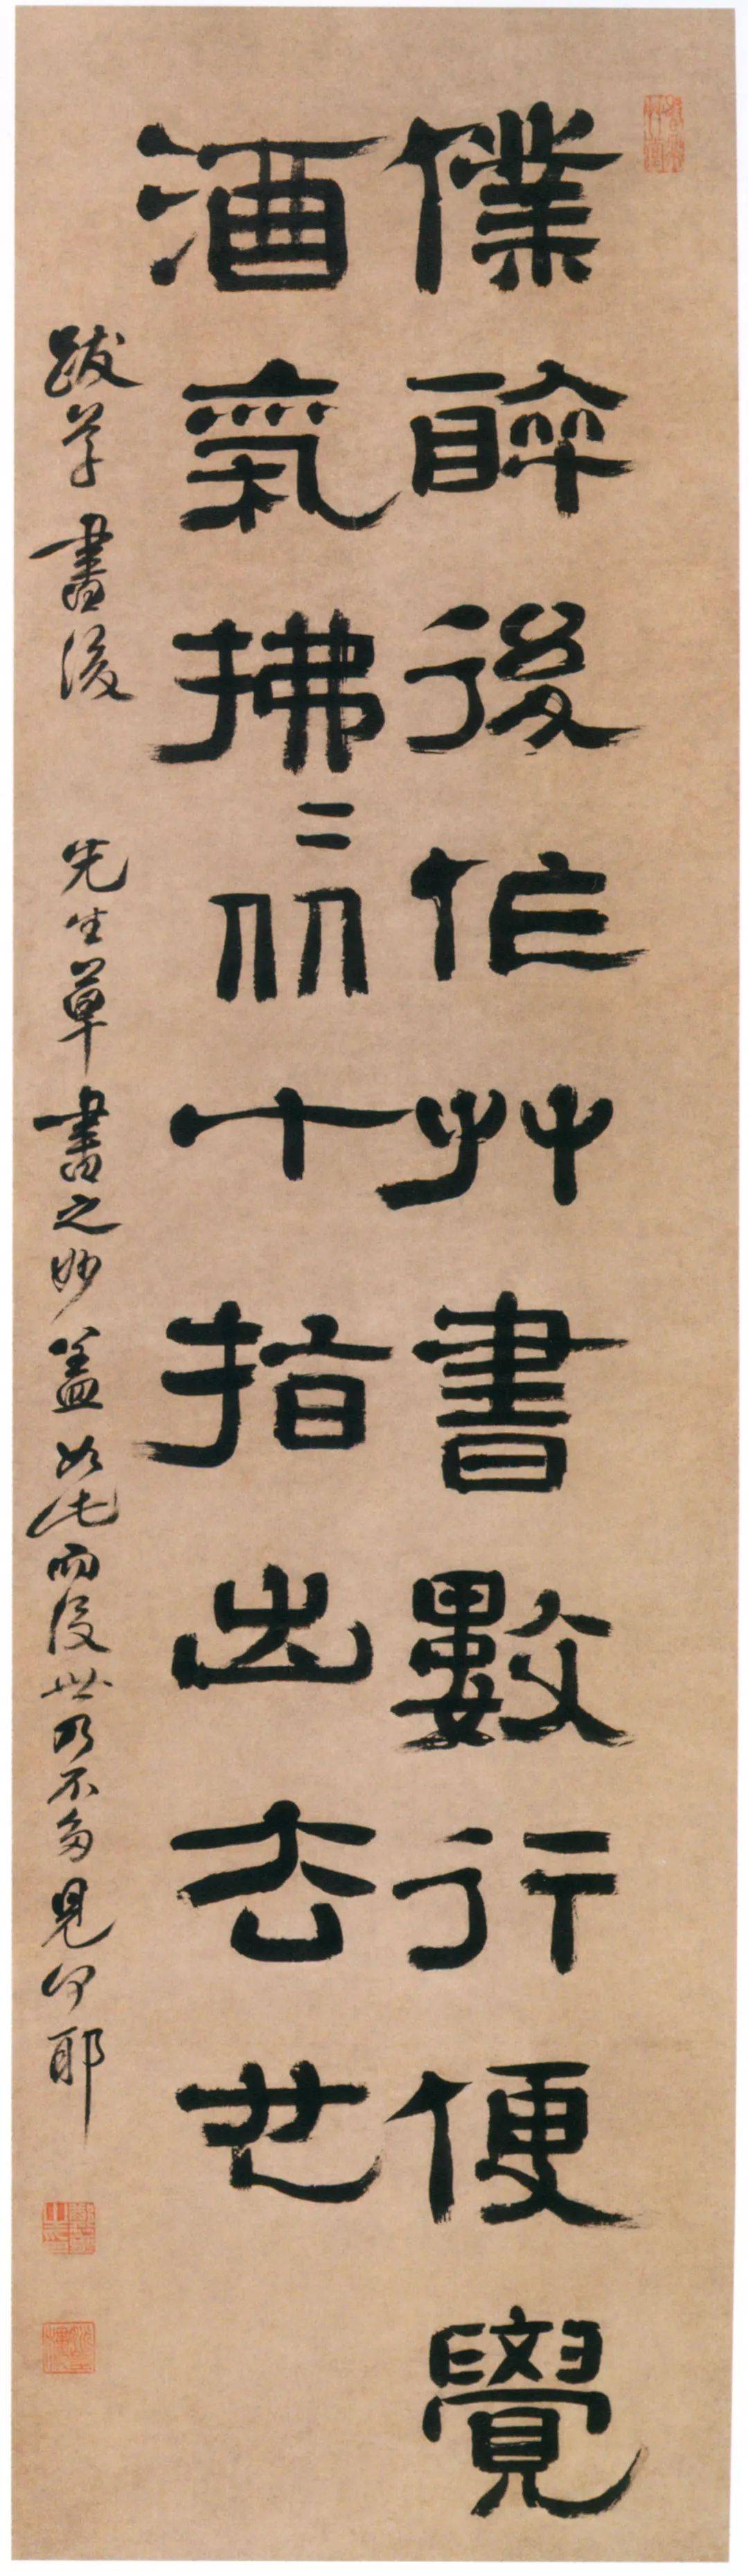 僕醉後作艸書數行便覺
酒氣拂〻从十指出去也
跋草書後 先生草書之妙蓋如此而後世乃不多見何耶